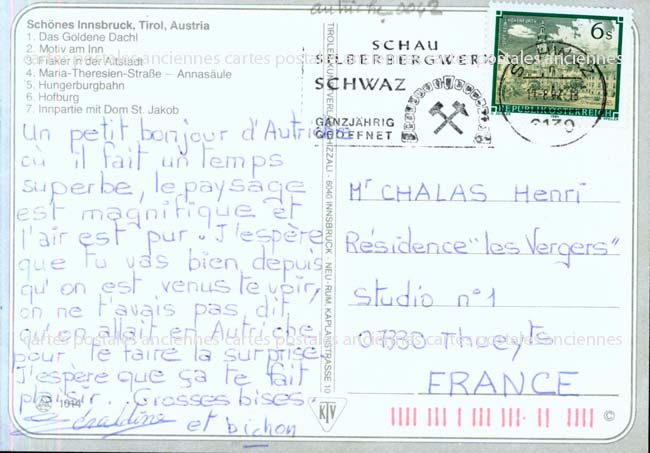 autriche 0042
Schönes Innsbruck, Tirol, Austria
1. Das Goldene Dachl
2. Motiv am Inn
3. Fiaker in der Altstadt
4. Maria-Theresien-Straße - Annasäule
5. Hungerburgbahn
6. Hofburg
7. Innpartie mit Dom St. Jakob
Un petit bonjour d'Autriche
où il fait un temps
superbe, le paysage
est magnifique et
l'air est pur. J'espère
que tu vas bien depuis
qu'on est venus te voir,
on ne t'avais pas dit
qu'on allait en Autriche
pour te faire la surprise
J'espère que ça te fait
plaisir. Grosses bises.
Géraldine et bichon
1914
SCHAU
SILBERBERGWERK
SCHWAZ
GANZJÄHRIG
GEÖFFNET
6130
6s
REPUBLIK ÖSTERREICH
TIROLER KUNSTVERLAG CHIZZALI - 6040 INNSBRUCK - NEU-RUM, KAPLANSTRASSE 10
KTV
Mr CHALAS Henri
Résidence "les Vergers"
Studio n°1
07330 Thueyts
FRANCE
©
cartes postales anciennes cartes postales anciennes cartes postales anciennes
cartes postales anciennes cartes postales anciennes cartes postales anciennes